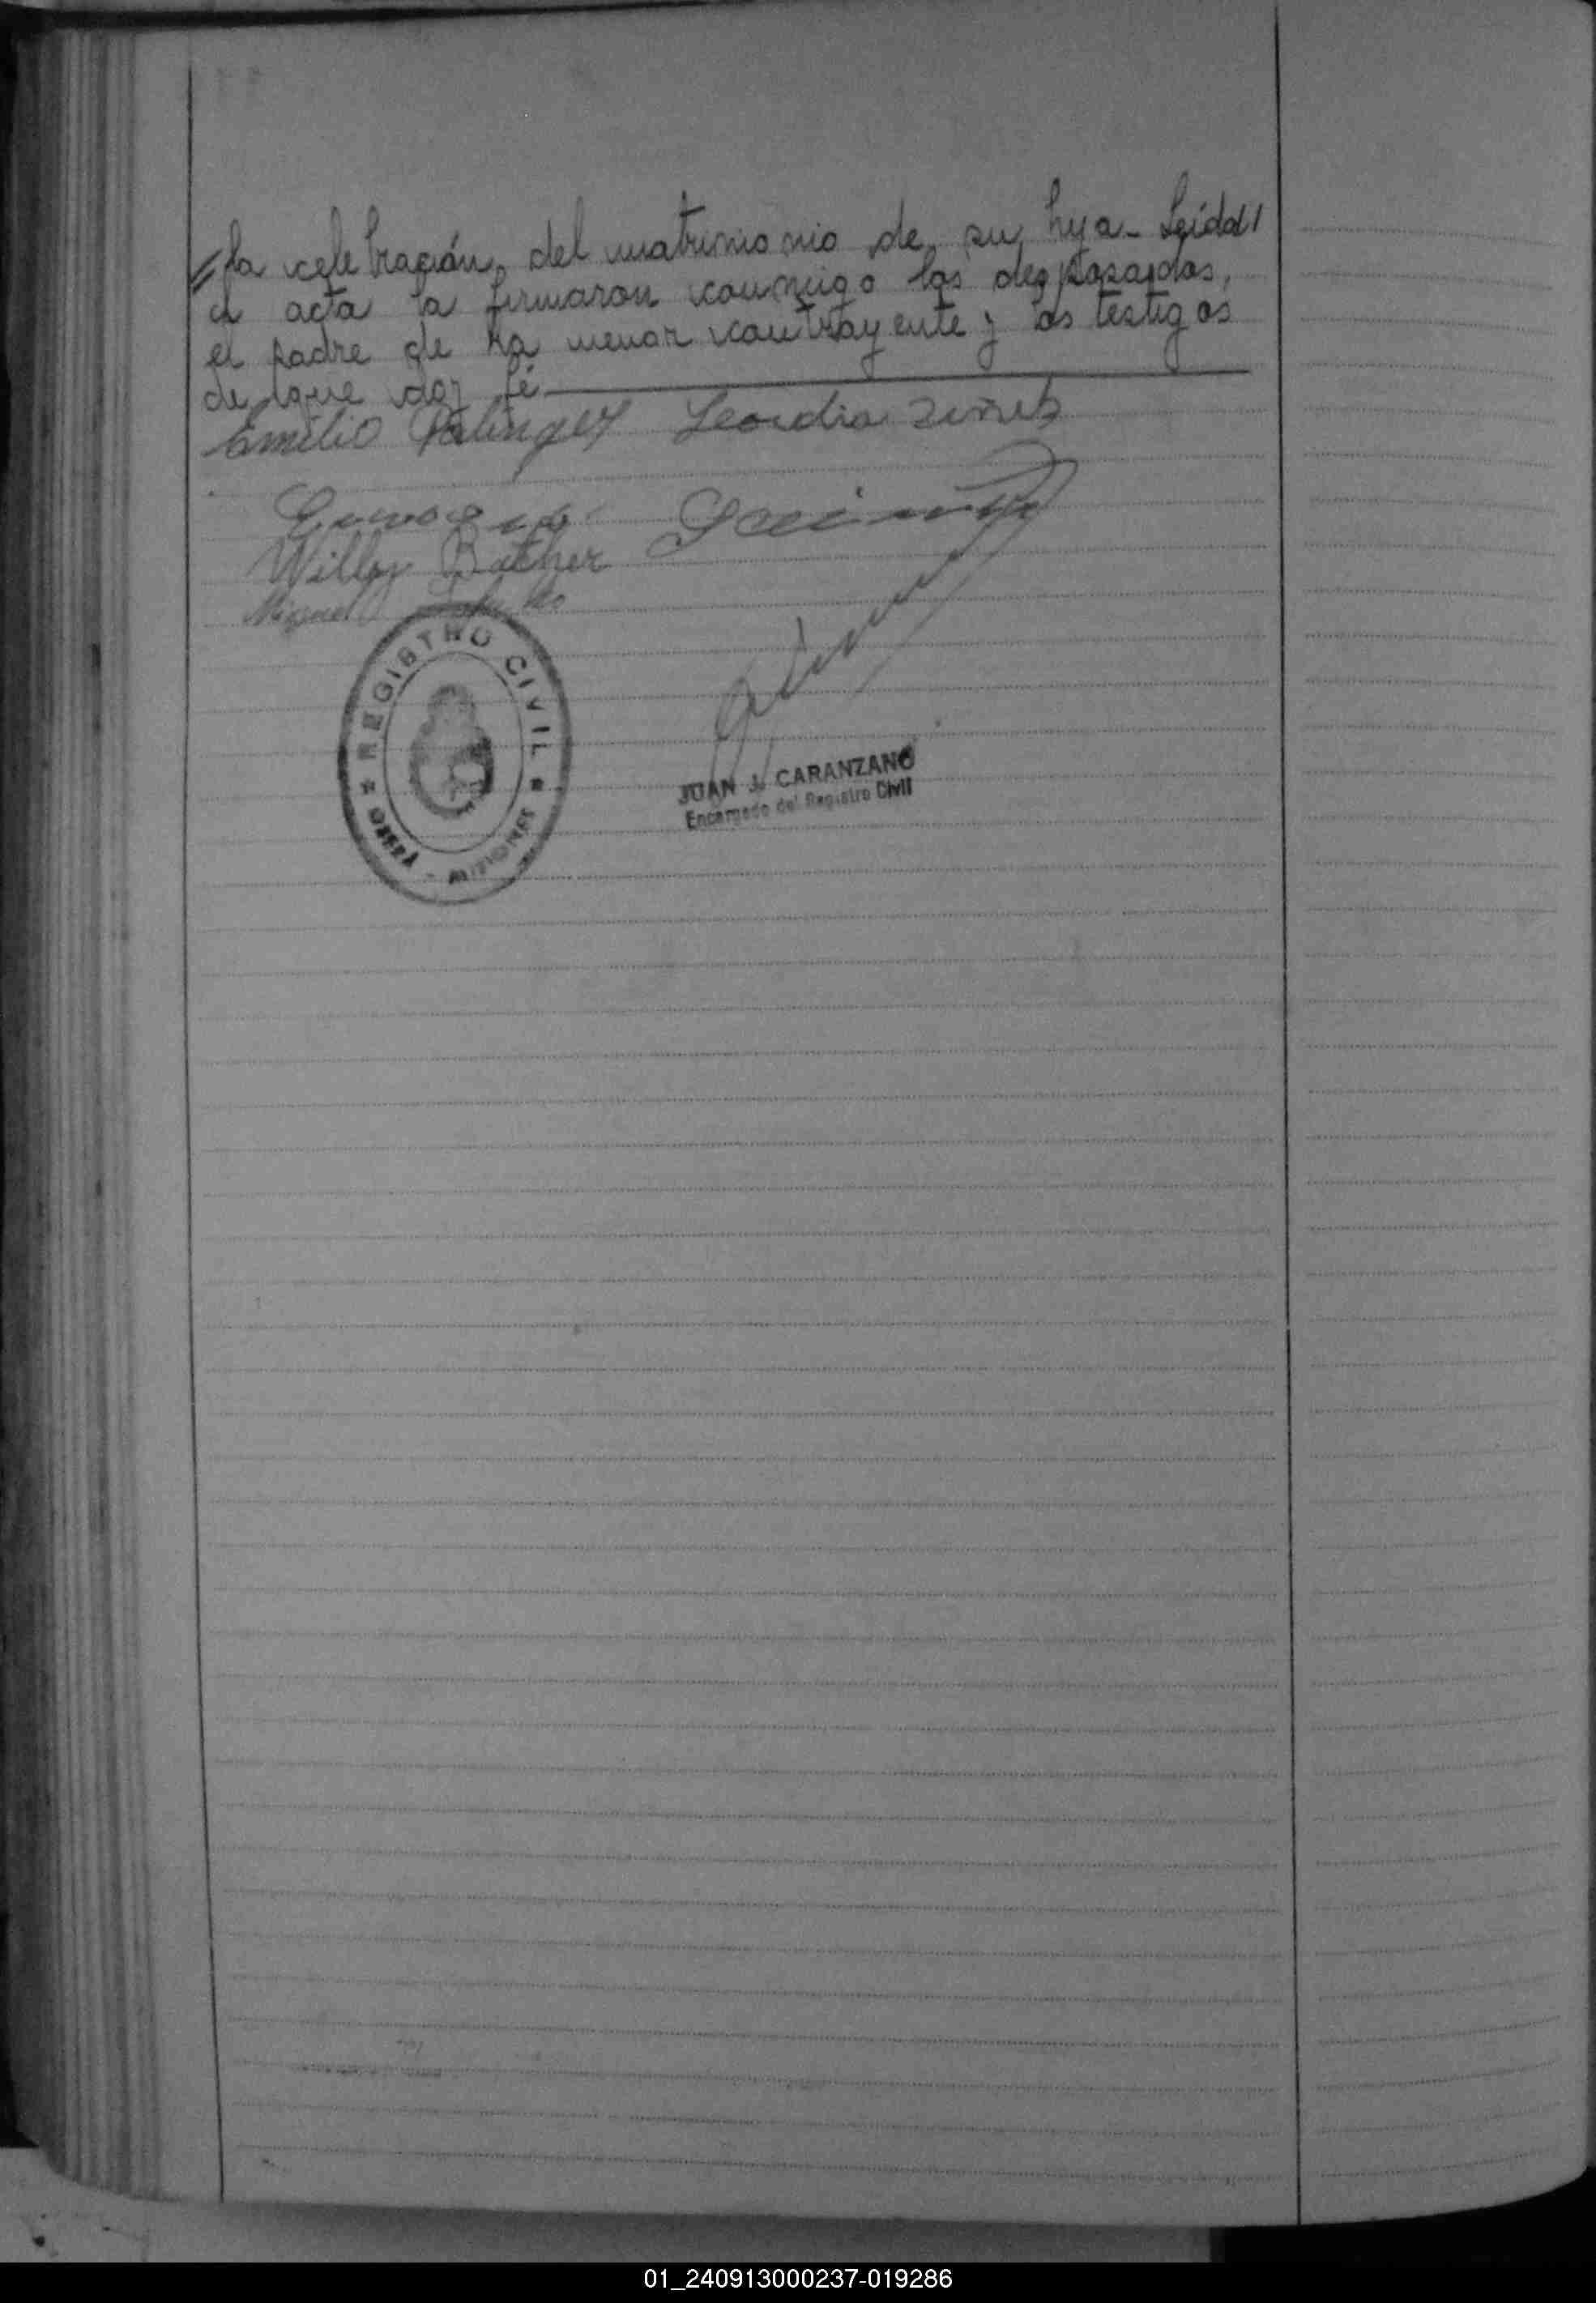 // la celebración, del matrimonio de su hija - Leida
el acta la firmaron conmigo los desposados,
el padre de la menor contrayente y los testigos
de que doy fé
Emilio Leocadia
Willy
Miguel
REGISTRO CIVIL
OBERÁ - MISIONES
JUAN J. CARANZANO
Encargado del Registro Civil
01_240913000237-019286